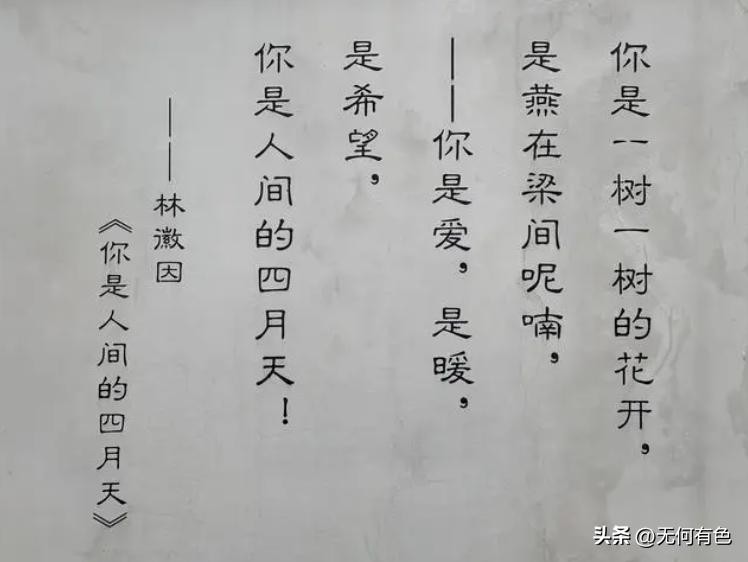 你是一树一树的花开，
是燕在梁间呢喃，
——你是爱，是暖，
是希望，
你是人间的四月天！
——林徽因
《你是人间的四月天》
头条 @无何有色